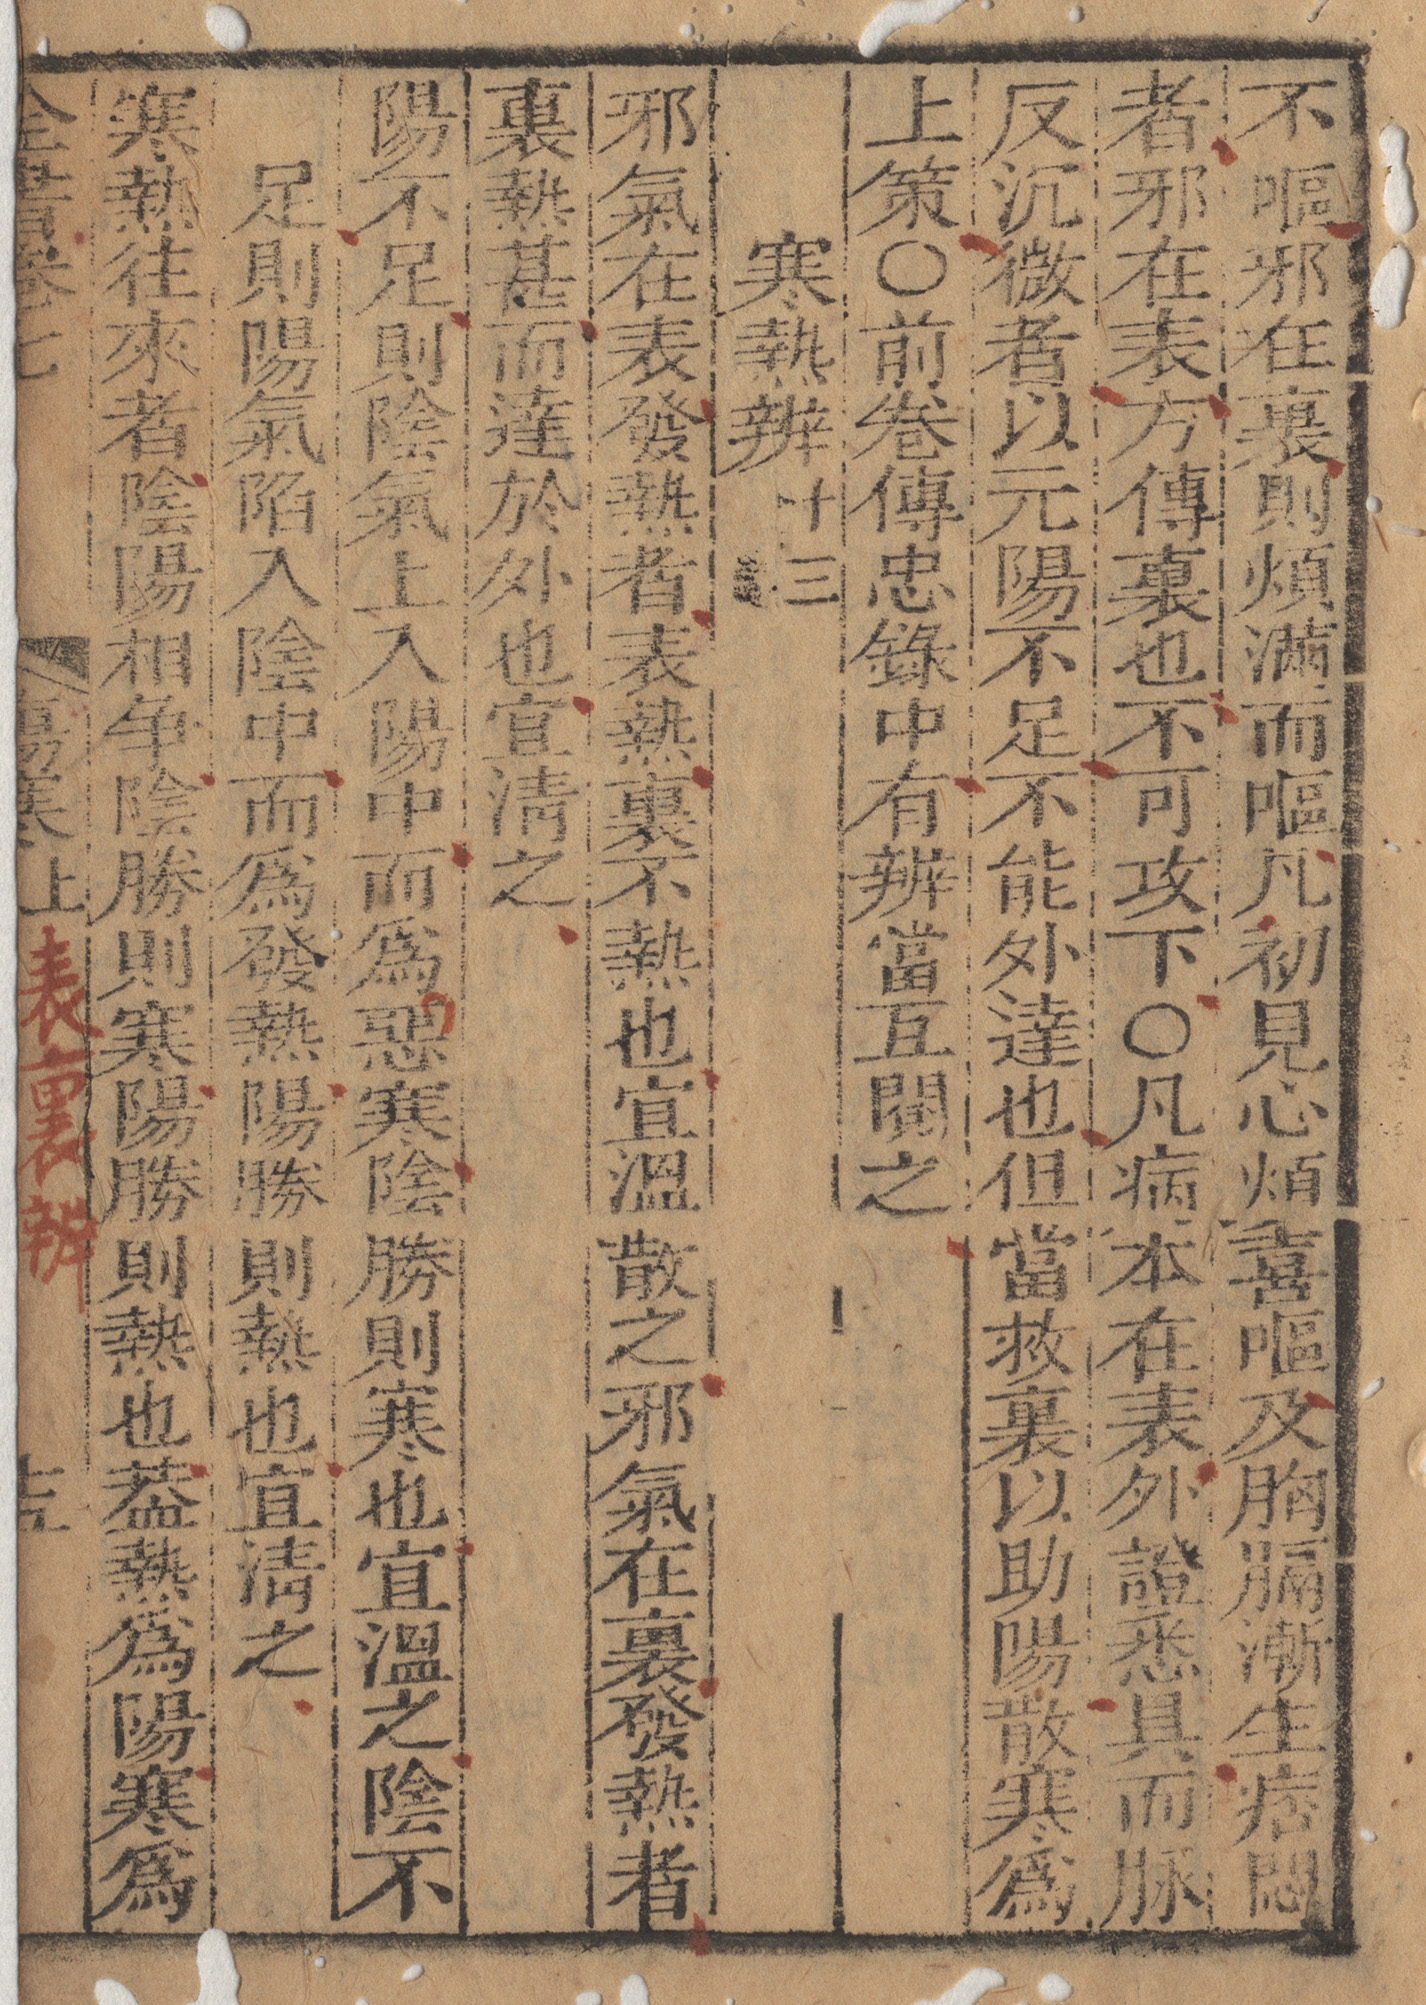 不嘔邪在裏則煩滿而嘔凡初見心煩喜嘔及胸膈漸生痞悶
者邪在表方傳裏也不可攻下〇凡病本在表外證悉具而脉
反沉微者以元陽不足不能外達也但當救裏以助陽散寒爲
上策〇前卷傳忠錄中有辨當互閱之
寒熱辨十三
邪氣在表發熱者表熱裏不熱也宜溫散之邪氣在裏發熱者
裏熱甚而達於外也宜淸之
陽不足則陰氣上入陽中而爲惡寒陰勝則寒也宜溫之陰不
足則陽氣陷入陰中而爲發熱陽勝則熱也宜淸之
寒熱往來者陰陽相爭陰勝則寒陽勝則熱也葢熱爲陽寒爲
全書卷七
傷寒上
表裏辨